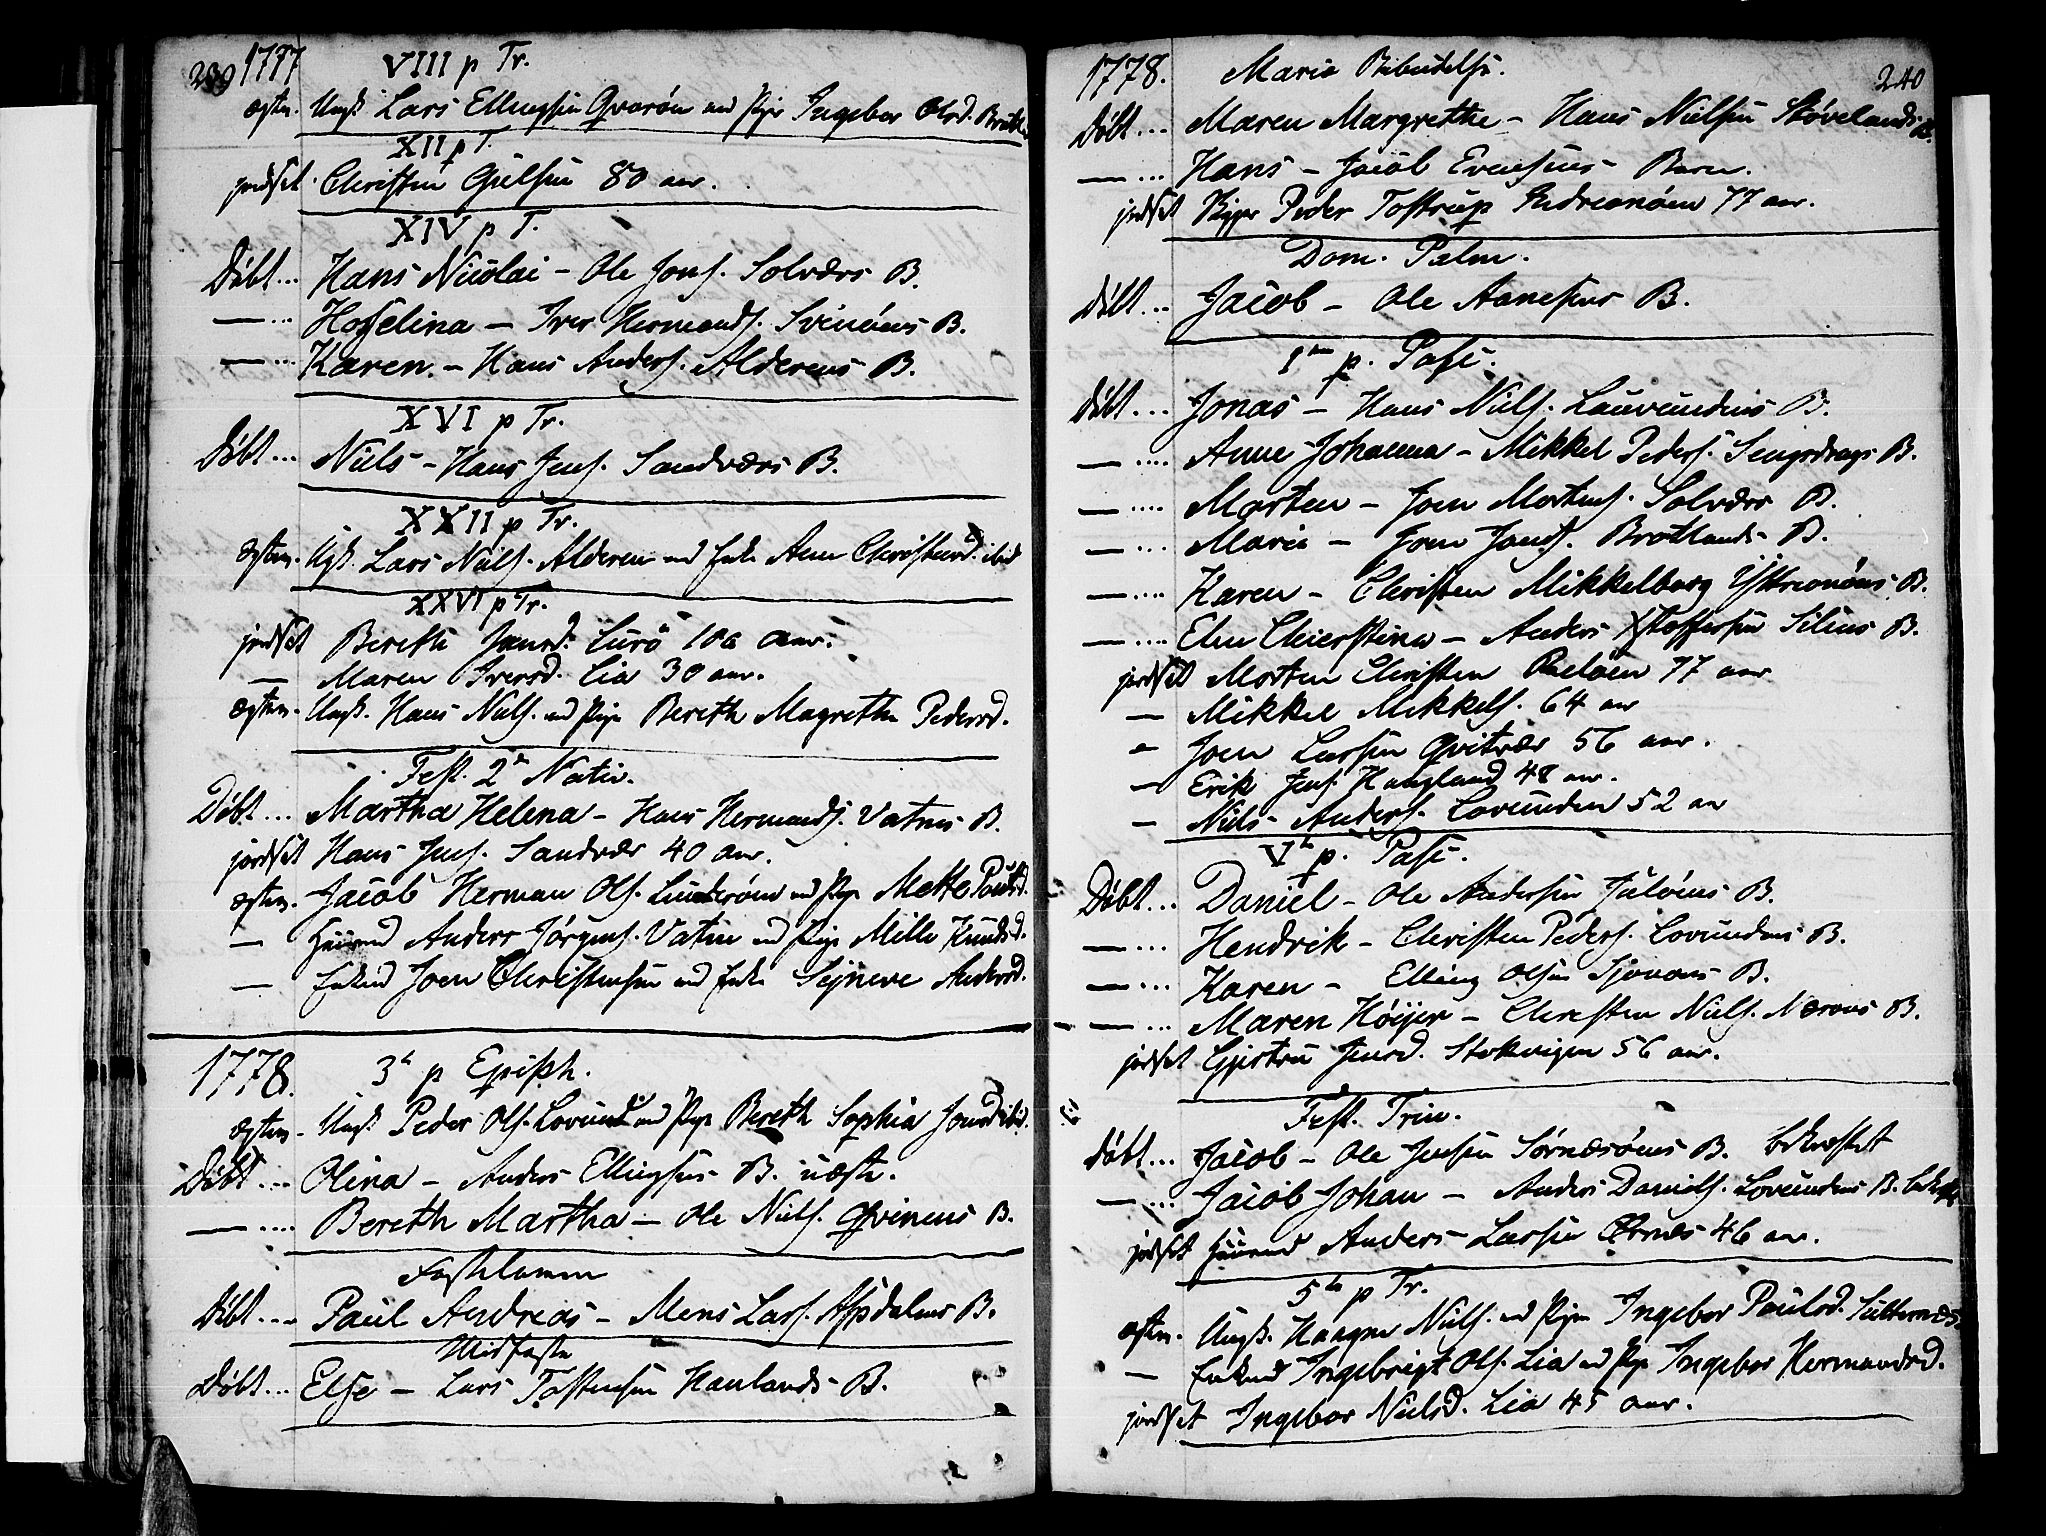 239 1777 VIII p Tr.
ægtev. Ungk. Lars Ellingsen Qvarøen med Pige Ingebor Olsd.
XII p T.
jordset Christen Gielsen 80 aar.
XIV p T.
Døbt... Hans Nicolai - Ole Jons. Solværs B.
—... Hosselina - Iver Hermands. Svinøens B.
—... Karen. - Hans Anders. Alderens B.
XVI p Tr.
Døbt... Niels - Hans Jens. Sandværs B.
XXII p Tr.
ægtev. Ugk. Lars Niels. Alderen med Enke Anne Christensd. ibid
XXVI p Tr.
jordset Bereth Jensd. Lurö 100 aar.
— Maren Iversd. Lia 30 aar.
ægtev. Ungk. Hans Niels. med Pige Bereth Magrethe Pedersd.
Fest. 2 Nativ.
Døbt... Martha Helena - Hans Hermands. Vatnes B.
jordset Hans Jens. Sandvær 40 aar.
ægtev. Jacob Herman Ols. med Pige Mette Poulsd.
— Anders Jørgens. Vatne med Pige Mille Knudsd.
— Enkmd Joen Christensen med Enke Sejneve Andersd.
1778. 3 p Epiph.
ægtev. Ungk. Peder Ols. Lovund med Pige Bereth Sophia Jonsd ibid.
Døbt... Olina - Anders Ellingsens B. uægte.
—.... Bereth Martha - Ole Niels. Qvinens B.
Fastelavn
Døbt... Paul Andreas - Mens Lars. Aspdalens B.
Midfaste
Døbt... Else - Lars Tostensen Haulands B.
1778. Mariæ Bebudelse. 240
Døbt... Maren Margrethe - Hans Nielsen Støvelands B.
—... Hans - Jacob Evensens Barn.
jordset Peder Tostrup Indreqvarøen 77 aar.
Dom. Palm.
Døbt... Jacob - Ole Aanesens B.
1 p. Pasc.
Døbt... Jonas - Hans Niels. Lauvundens B.
—.... Anne Johanna - Mikkel Peders. Sengsdrags B.
—.... Morten - Joen Mortens. Solvær B.
—... Maria - Joen Jons. Bratlands B.
—.... Karen - Christen Mikkelborg Ytterqvarøens B.
—.... Elen Chierstina - Anders Xstoffersen Silens B.
jordset Morten Christen Rødøen 77 aar
— Mikkel Mikkels. 64 aar
— Joen Larsen Qvitvær 56 aar.
— Erik Jens. Haugland 48 aar.
— Niels Anders. Lovunden 52 aar
V p. Pasc.
Døbt... Daniel - Ole Andersen Juløens B.
—... Hendrik - Christen Peders. Lovundens B.
—... Karen - Elling Olsen Sjonas B.
—... Maren Høijer - Christen Niels. Næsøens B.
jordset Gjertru Jensd. Stokvigen 56 aar.
Fest. Trin.
døbt... Jacob - Ole Jensen Sørnæsøens B. bekræftet
—... Jacob Johan - Anders Daniels. Lovundens B.
jordset Anders Larsen Ørnæs 46 aar.
5 p Tr.
ægtev. Ungk. Haagen Niels. med Pigen Ingebor Paulsd.
— Enkmd Ingebrigt Ols. Lia med Pige Ingebor Hermandsd.
jordset Ingebor Nielsd. Lia 45 aar.